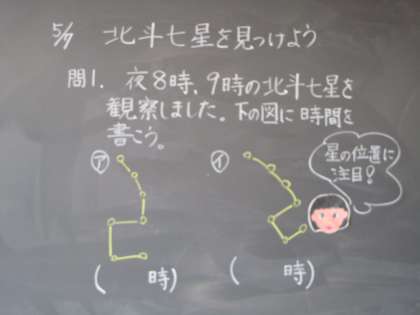 5/7 北斗七星を見つけよう
問1. 夜8時、9時の北斗七星を
観察しました。下の図に時間を
書こう。
ア イ
星の位置に
注目!
( 時) ( 時)